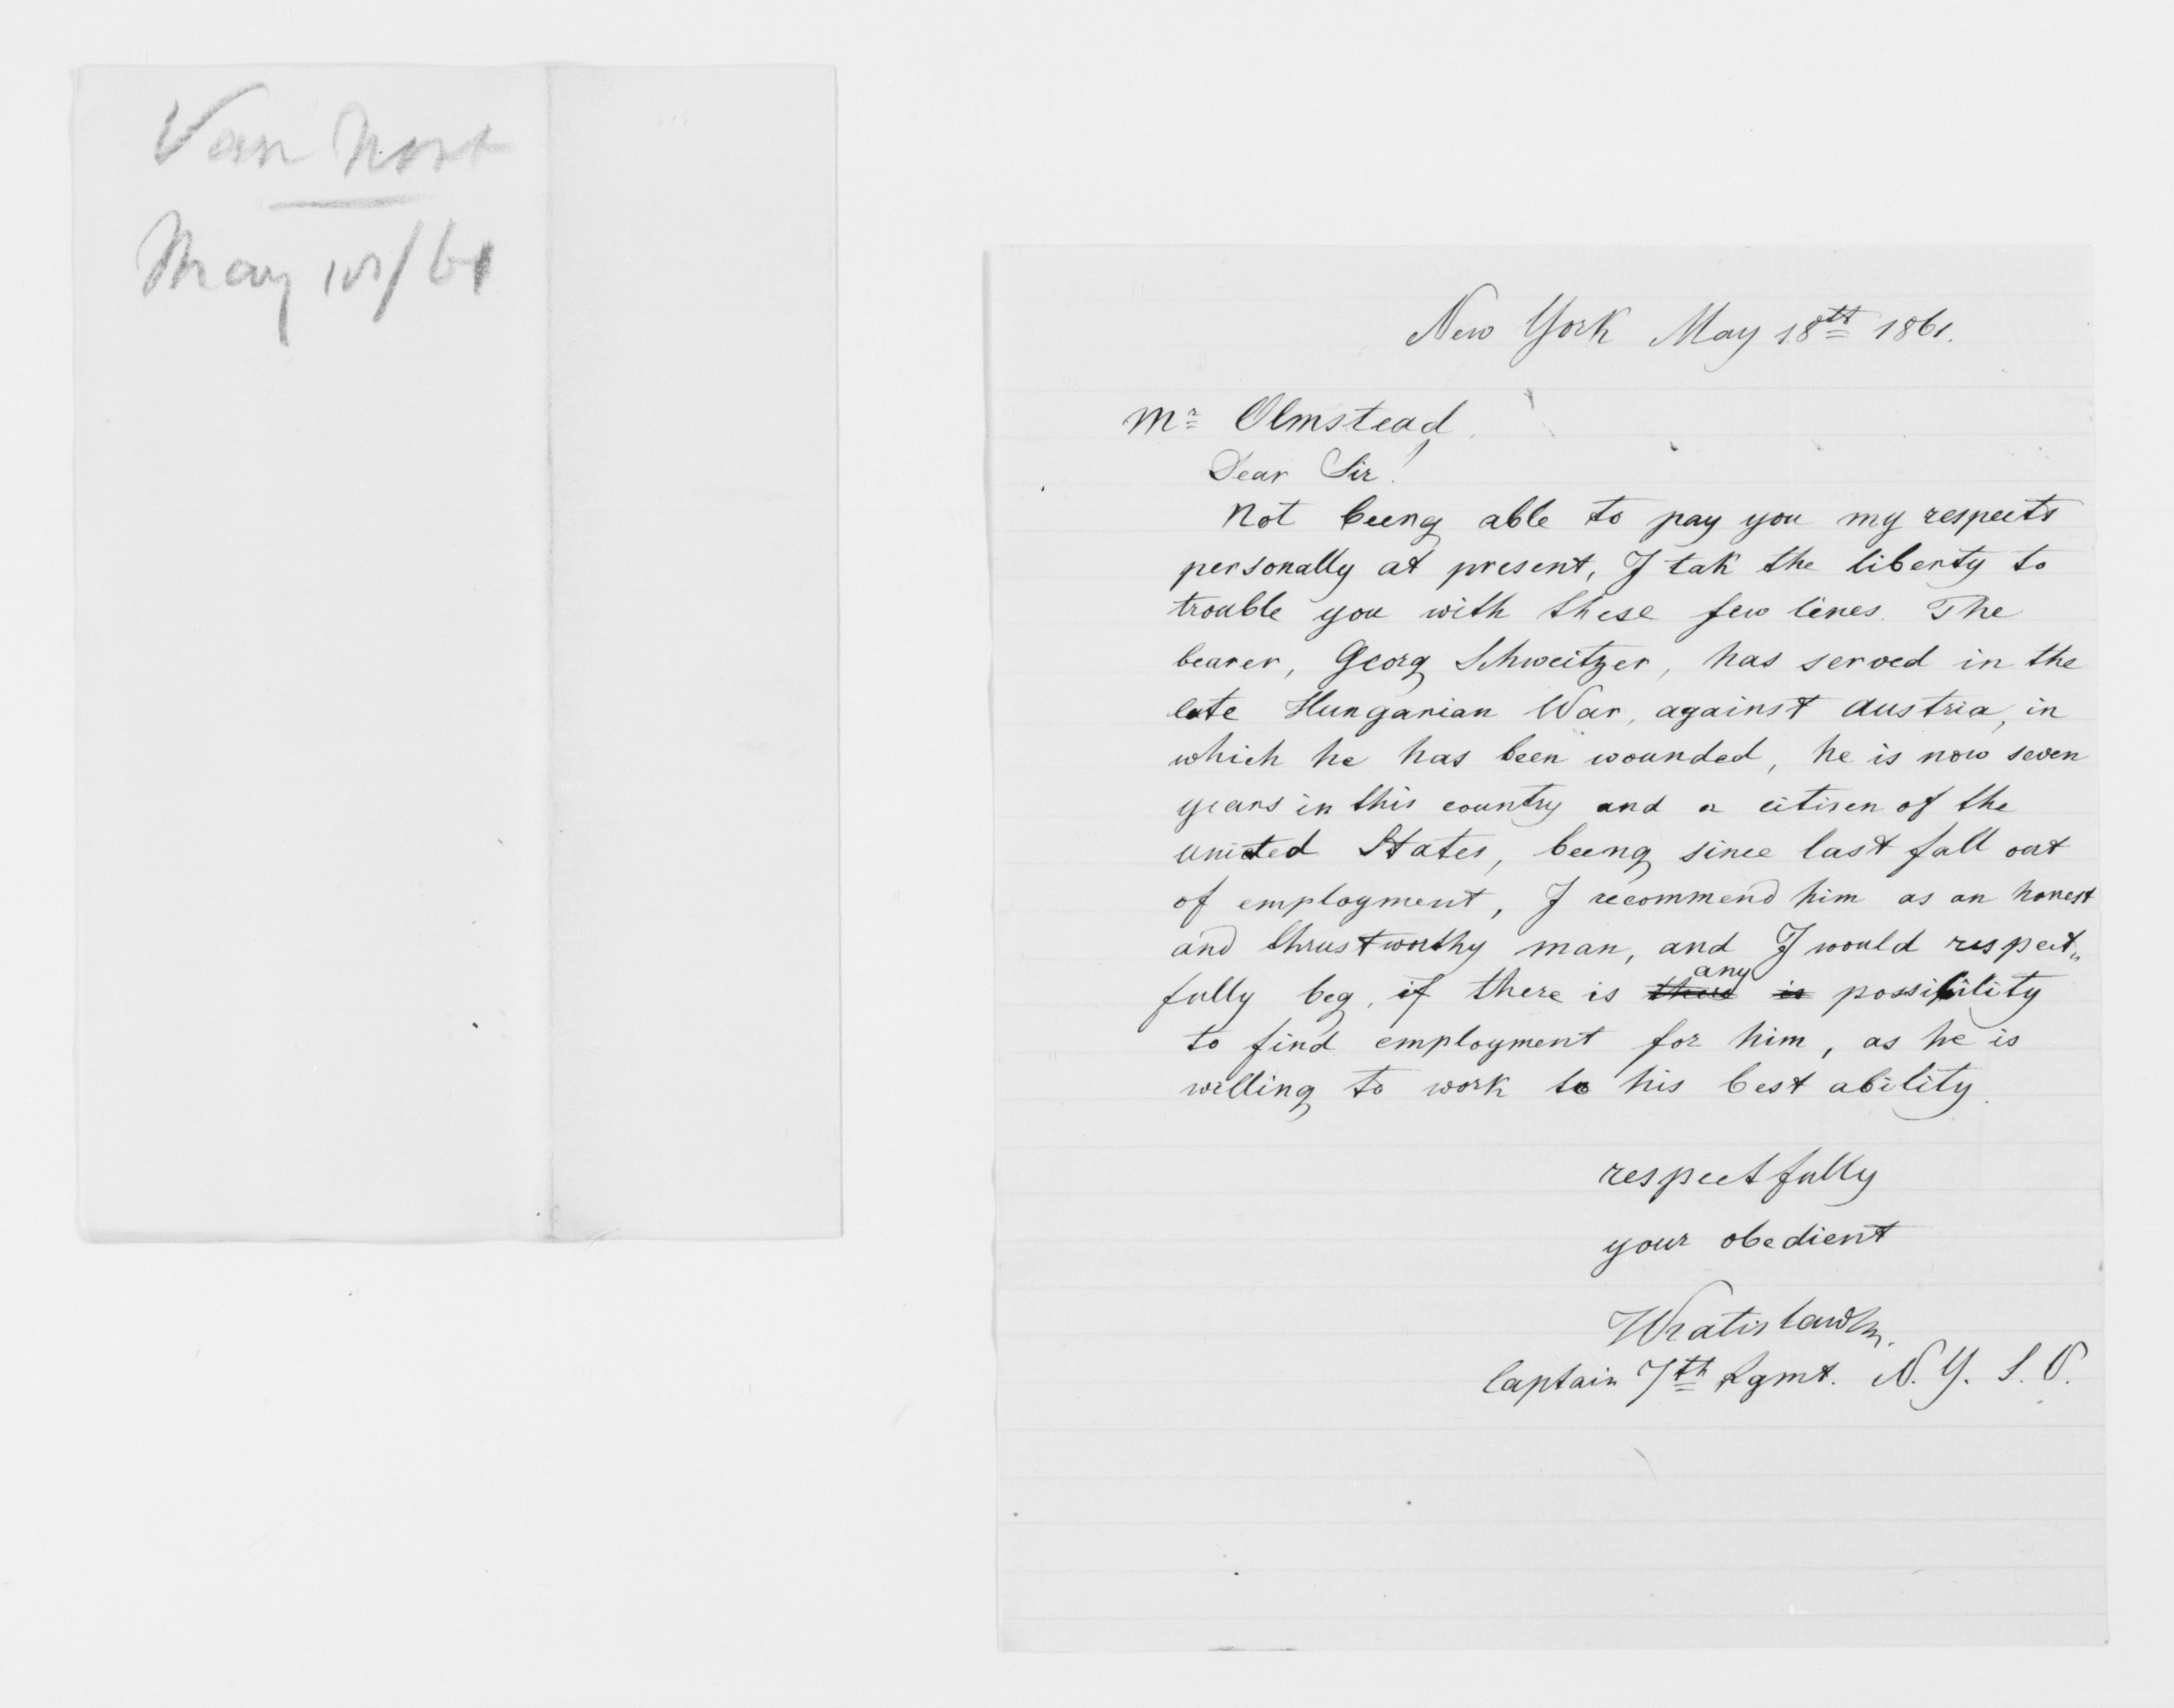 Van Nort
May 18/61
New York May 18th 1861.
Mr Olmstead.
Dear Sir!
Not beeng able to pay you my respects
personally at present, I tak the liberty to
trouble you with these few lines. The
bearer, Georg Schweitzer, has served in the
late Hungarian War, against Austria, in
which he has been wounded, he is now seven
years in this country and a citisen of the
united States, beeng since last fall out
of employment, I recommend him as an honest
and thrustworthy man, and I would respect„
fully beg, if there is there is any possibility
to find employment for him, as he is
willing to work to his best ability.
respectfully
your obedient
Captain 7th Rgmt. N. Y. S. V.